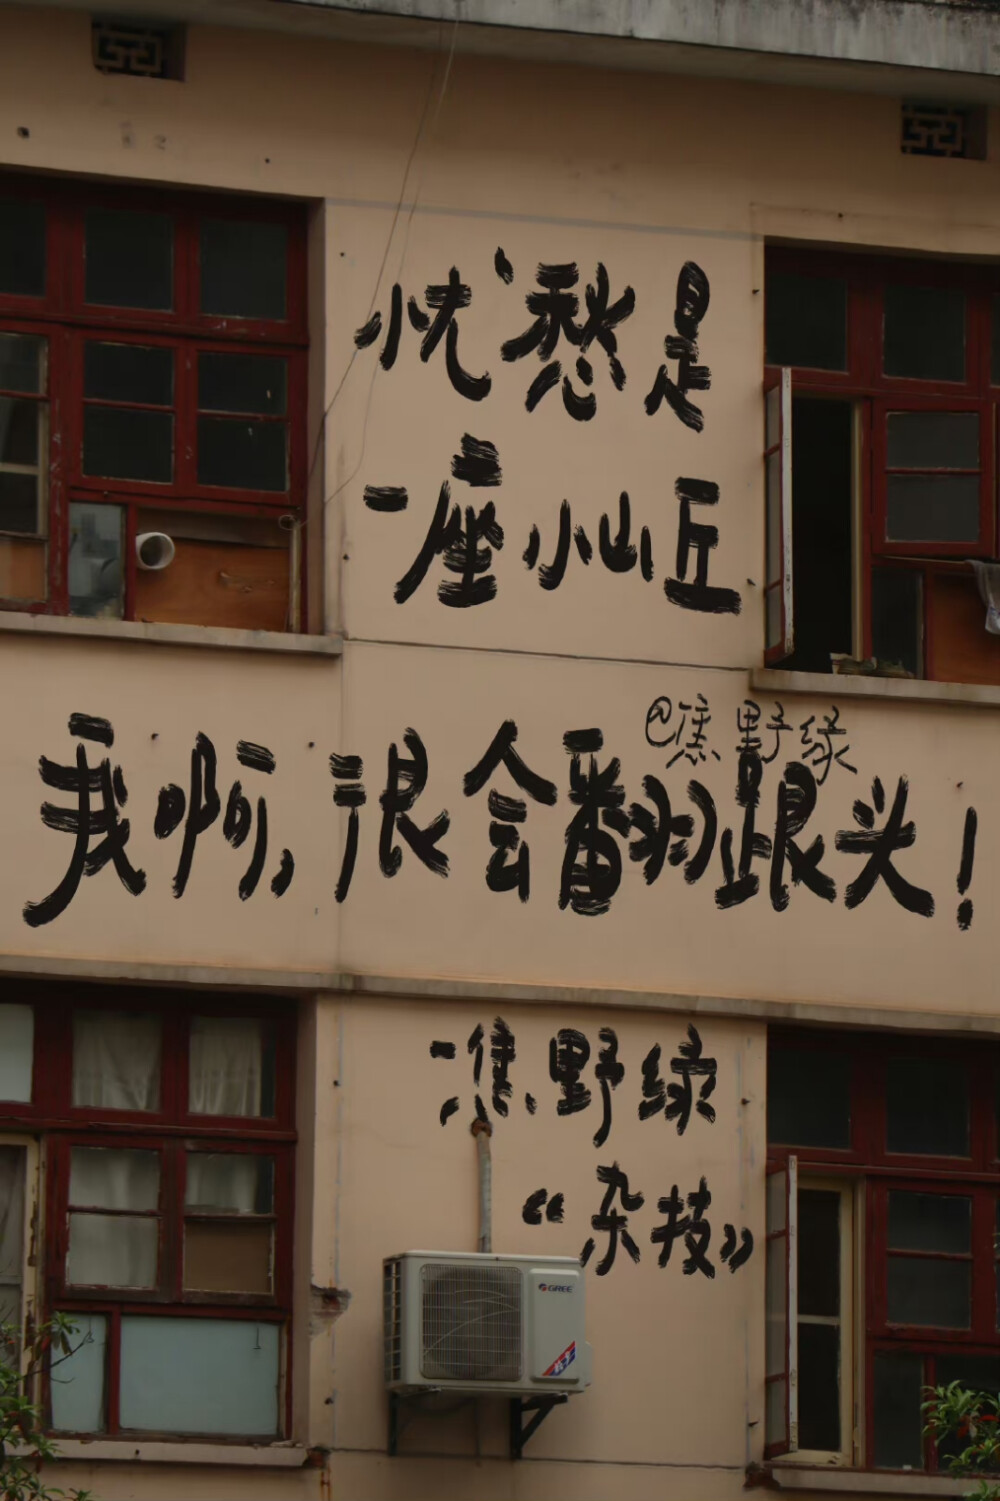 忧愁是
一座小山丘
@焦野绿
我啊,很会翻跟头!
-焦野绿
《杂技》
GREE